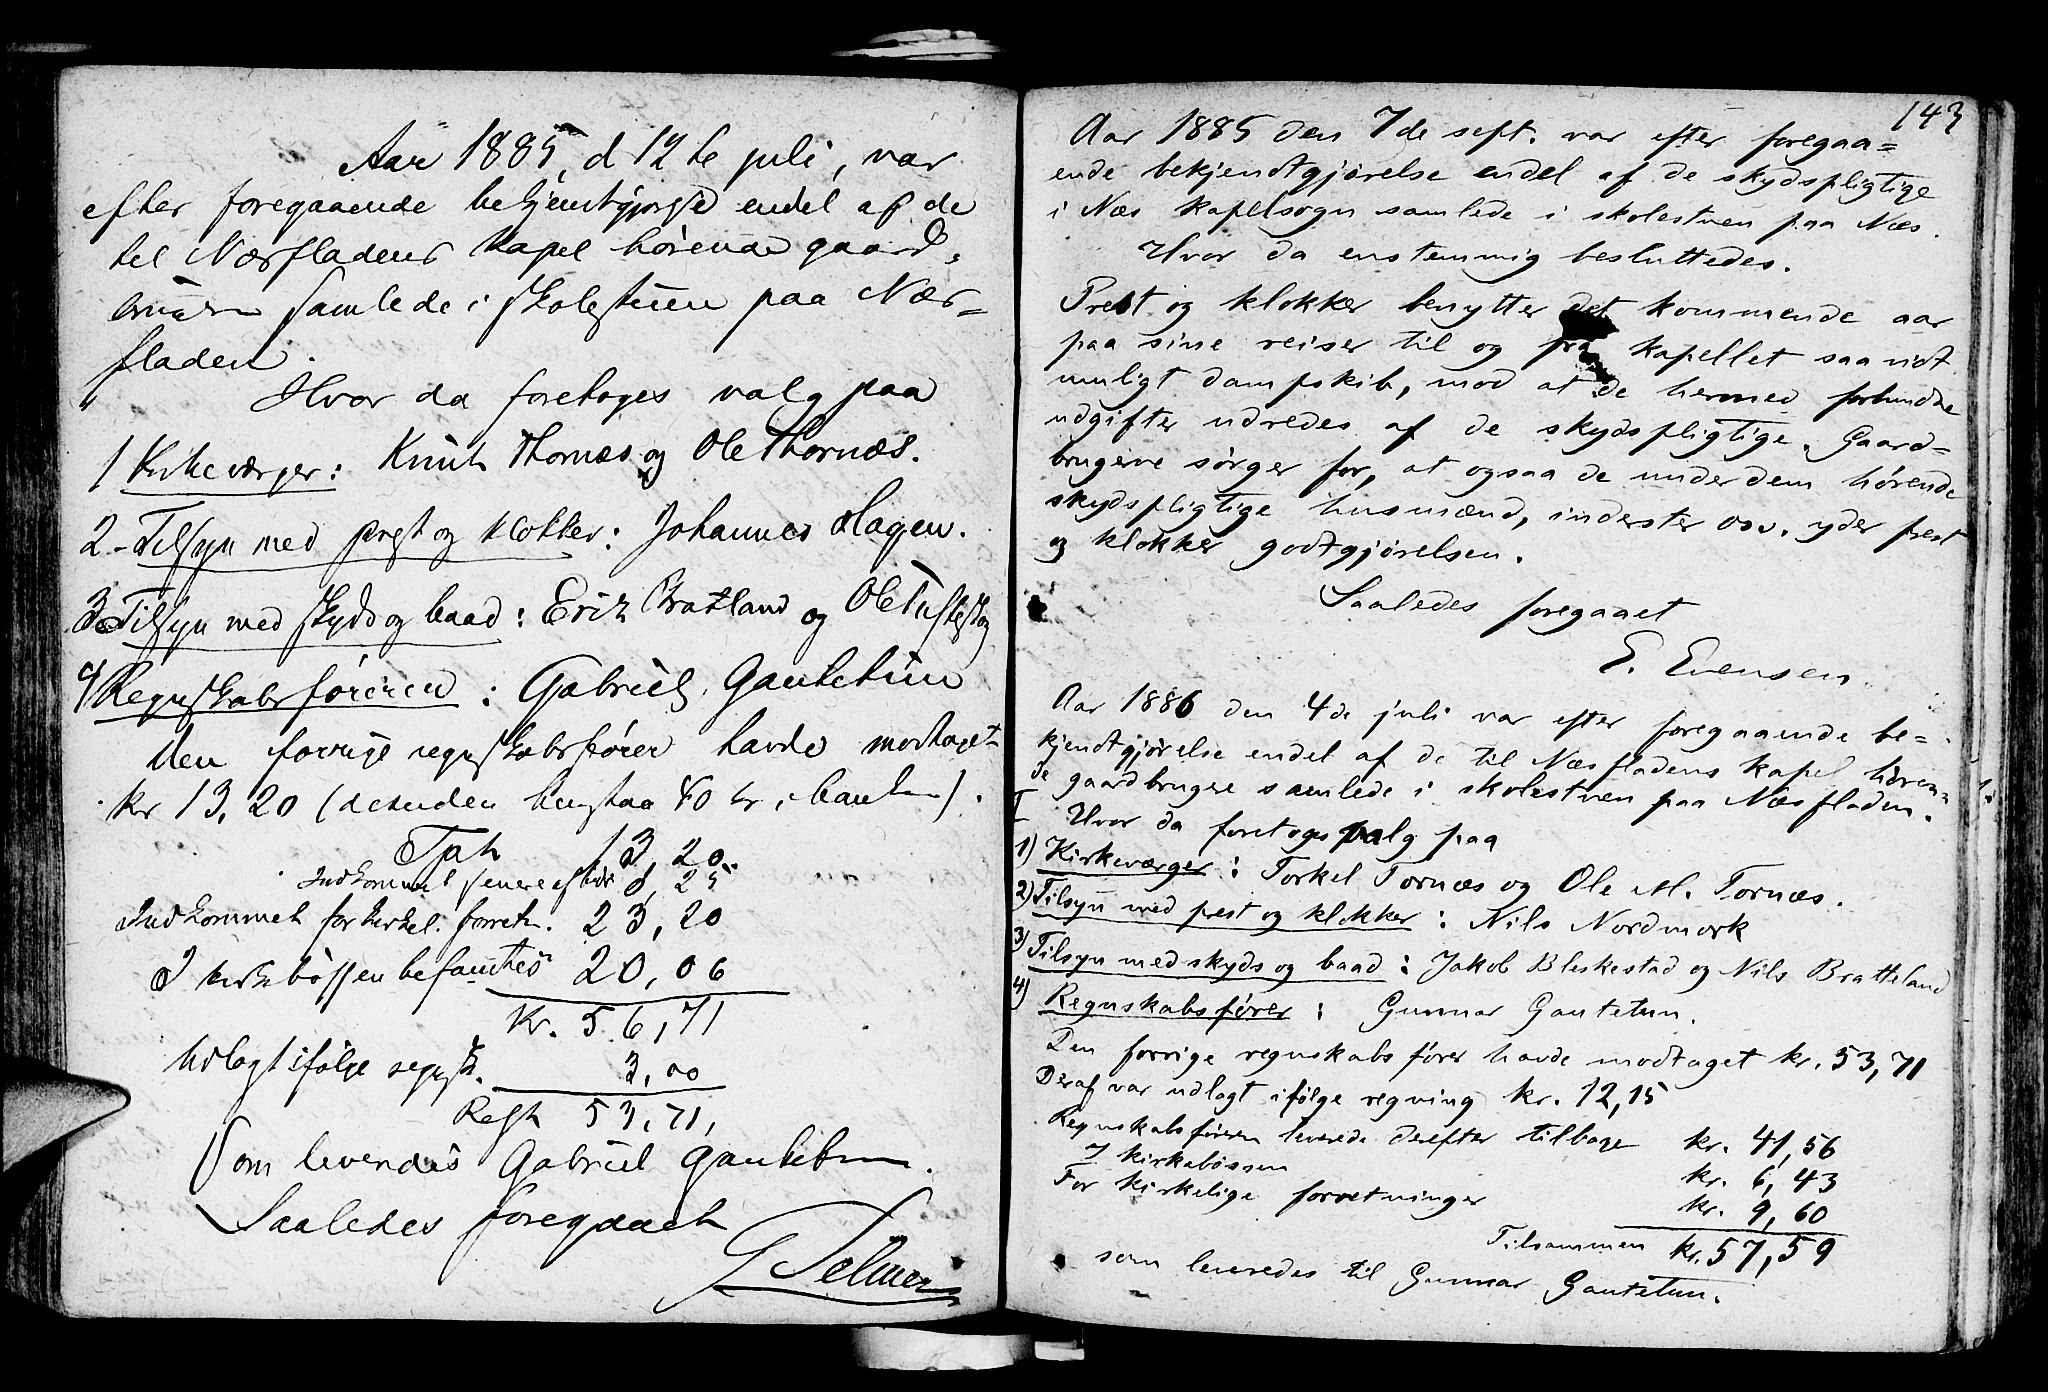 Aar 1885, d 12te juli, var
efter foregaaende bekjentgjørelse endel af de
til Næsfladens kapel hørende gaard-
brugere samlede i skolestuen paa Næs-
fladen.
Hvor da foretoges valg paa
1 Kirkeværger: Knut Thornæs og Ole Thornæs.
2 Tilsyn med prest og klokker: Johannes Hagen.
3 Tilsyn med skyds og baad: Erik Bratland og Ole Tufteskog
4 Regnskabsføreren: Gabriel Gautetun
Den forrige regnskabsfører havde modtaget
kr 13,20 (desuden henstaa 80 kr i banken).
13,20
Indkommet senere 25
Indkommet for kirkel. forretn. 23,20
I kirkebøssen befantes 20,06
Kr. 56,71
Udlagt ifølge regnsk. 3,00
Rest 53,71,
som leveredes Gabriel Gautetun.
Saaledes foregaaet
Selmer
143
Aar 1885 den 7de sept. var efter foregaa=
ende bekjendtgjørelse endel af de skydspligtige
i Næs kapelsogn samlede i skolestuen paa Næs.
Hvor da enstemmig besluttedes.
Prest og klokker benytter det kommende aar
paa sine reiser til og fra kapellet saavidt
muligt dampskib, mod at de hermed forbundne
udgifter udredes af de skydspligtige. Gaard-
brugerne sørger for, at ogsaa de under dem hørende
skydspligtige husmænd, inderster osv. yder prest
og klokker godtgjørelsen.
Saaledes foregaaet
E. Evensen.
Aar 1886 den 4de juli var efter foregaaende be=
kjendtgjørelse endel af de til Næsfladens kapel høren=
de gaardbrugere samlede i skolestuen paa Næsfladen.
I Hvor da foretoges valg paa
1) Kirkeværger: Torkel Tornæs og Ole M. Tornæs.
2) Tilsyn med prest og klokker: Nils Nordmork
3) Tilsyn med skyds og baad: Jakob Bleskestad og Nils Bratteland
4) Regnskabsfører: Gunnar Gautetun.
Den forrige regnskabsfører havde modtaget kr. 53,71
Deraf var udlagt ifølge regning kr. 12,15
Regnskabsføreren leverede derefter tilbage kr. 41,56
I kirkebøssen kr. 6,43
For kirkelige forretninger kr. 9,60
Tilsammen kr. 57,59
som leveredes til Gunnar Gautetun.